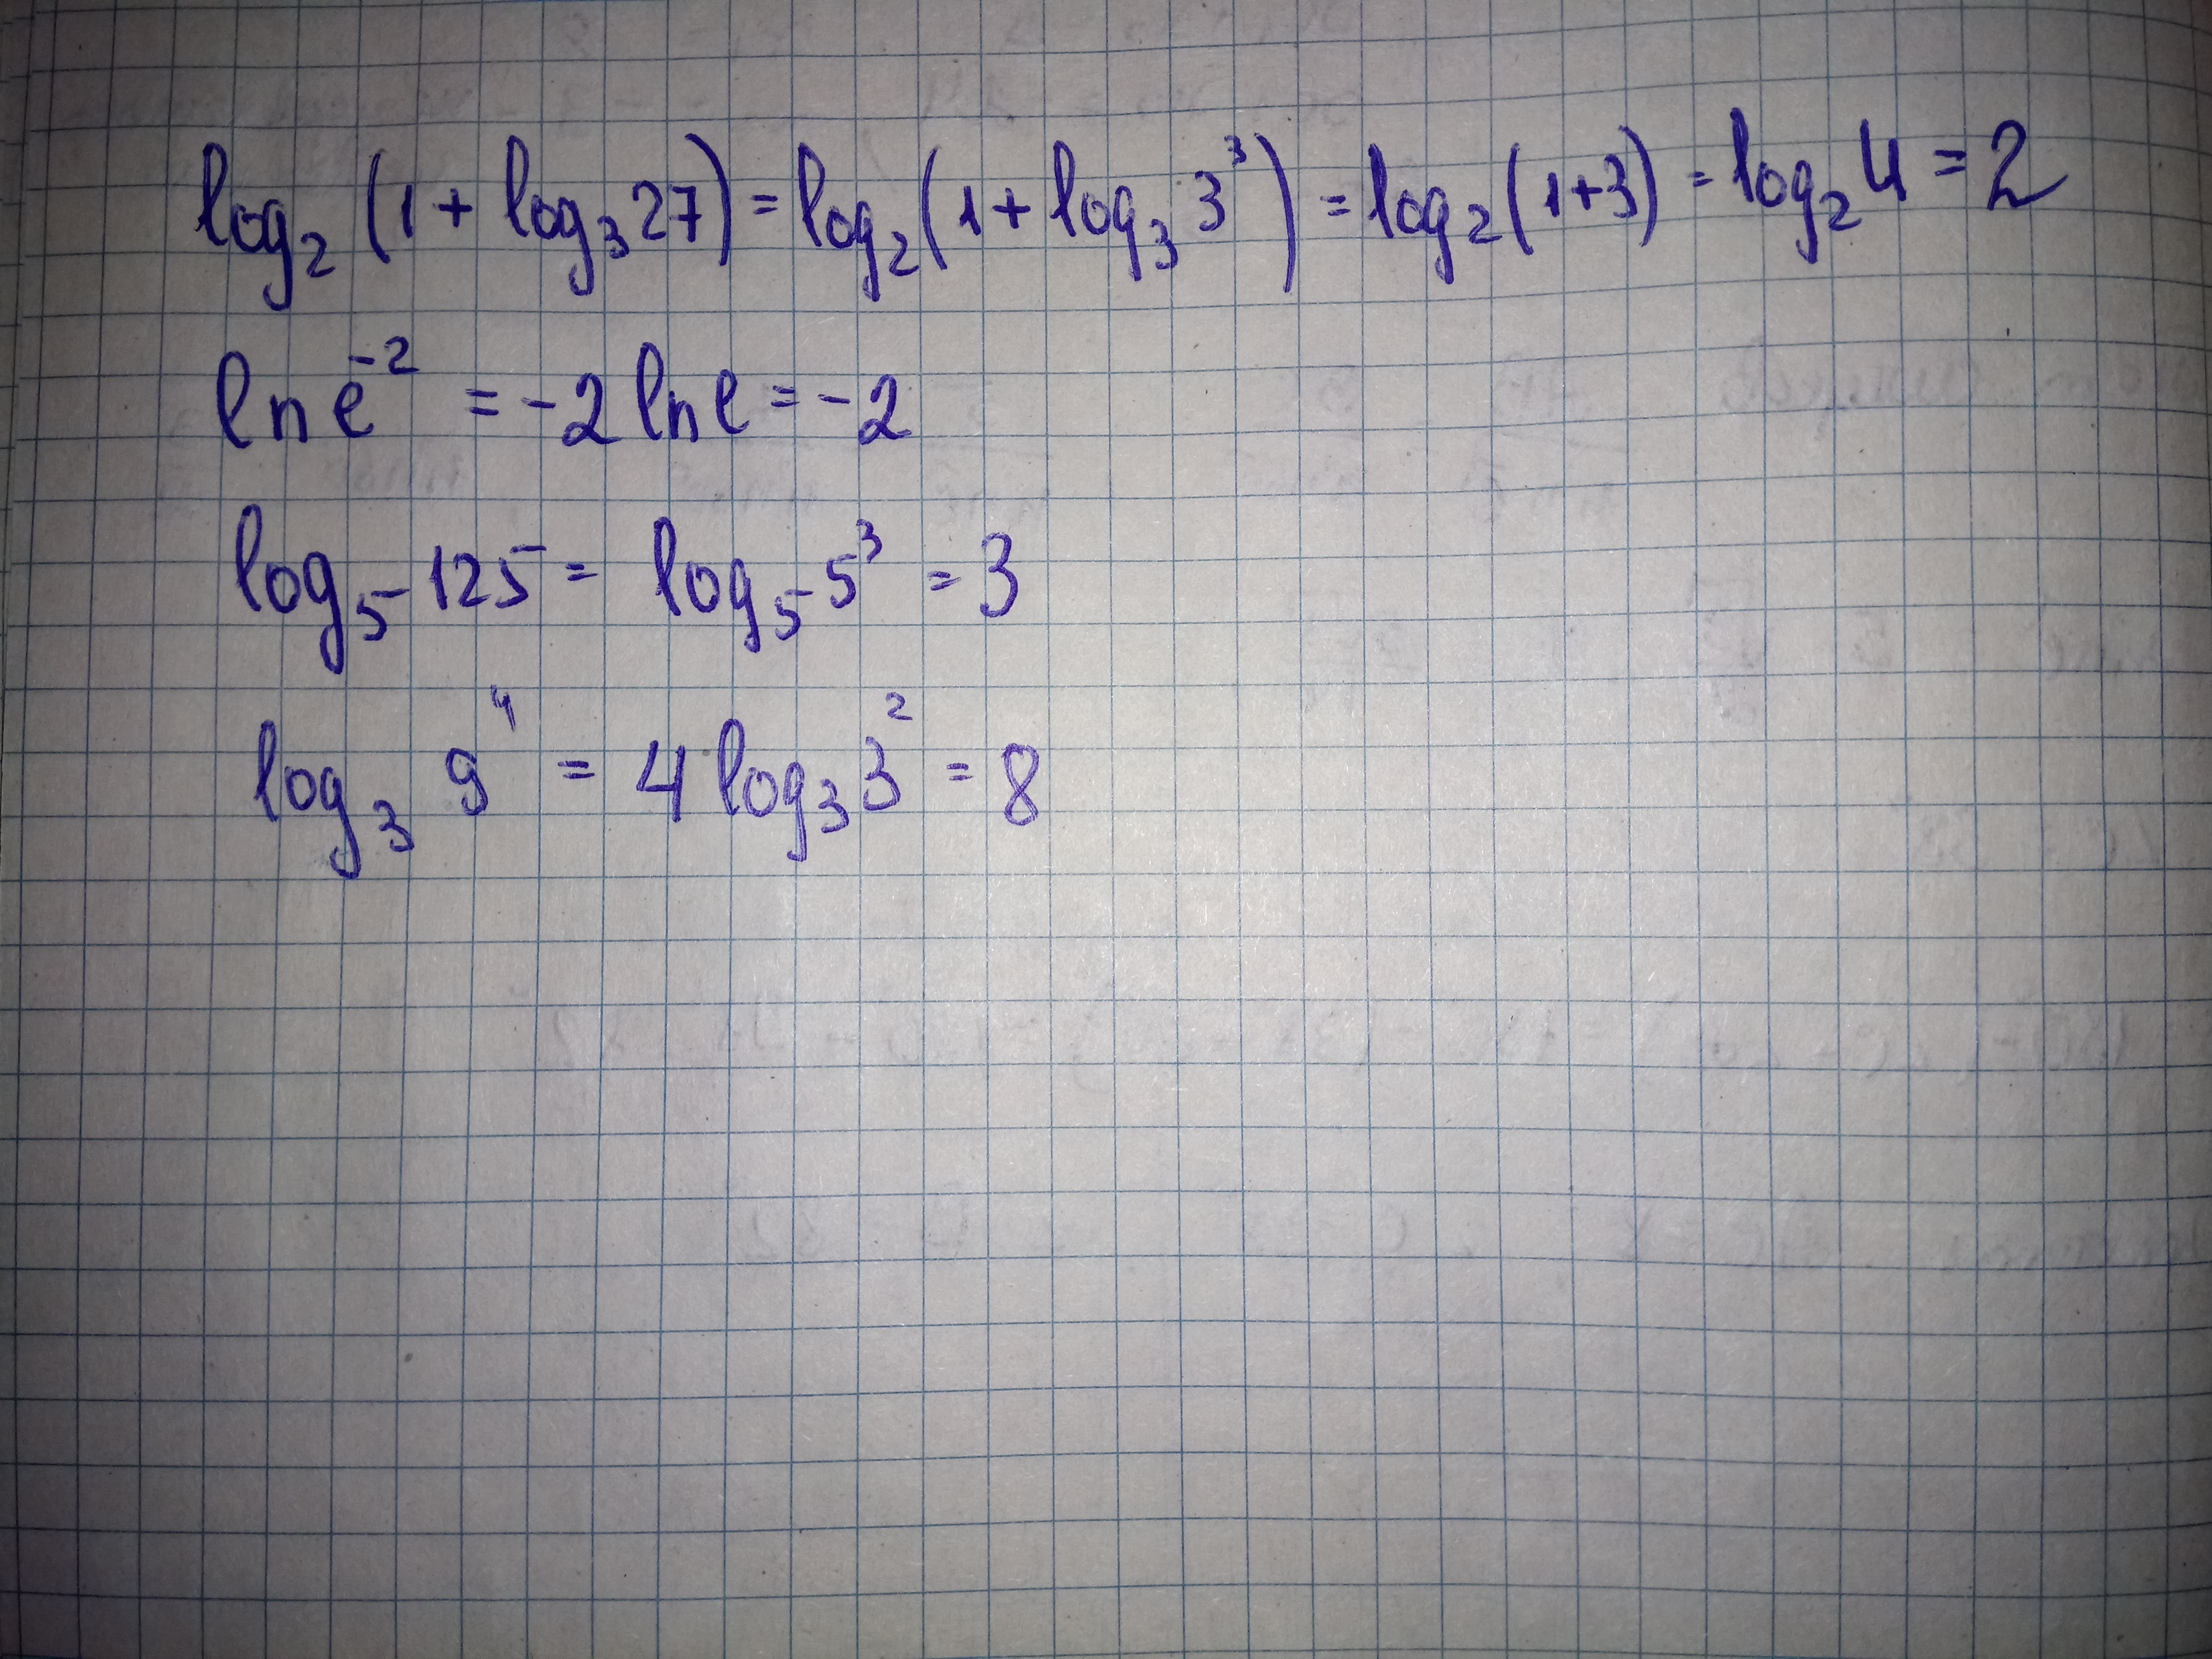 log₂ (1 + log₃ 27) = log₂ (1 + log₃ 3³) = log₂ (1+3) = log₂ 4 = 2
ln e⁻² = -2 ln e = -2
log₅ 125 = log₅ 5³ = 3
log₃ 9⁴ = 4 log₃ 3² = 8